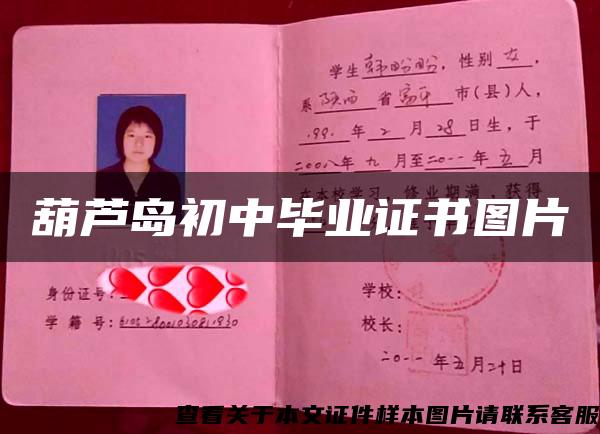 学生韩盼盼，性别女，
系陕西省富平市(县)人，
1991年2月28日生，于
二00八年九月至二0一一年五月
在本校学习，修业期满，获得
葫芦岛初中毕业证书图片
身份证号：
学籍号：
学校：
校长：
二0一一年五月二十日
查看关于本文证件样本图片请联系客服